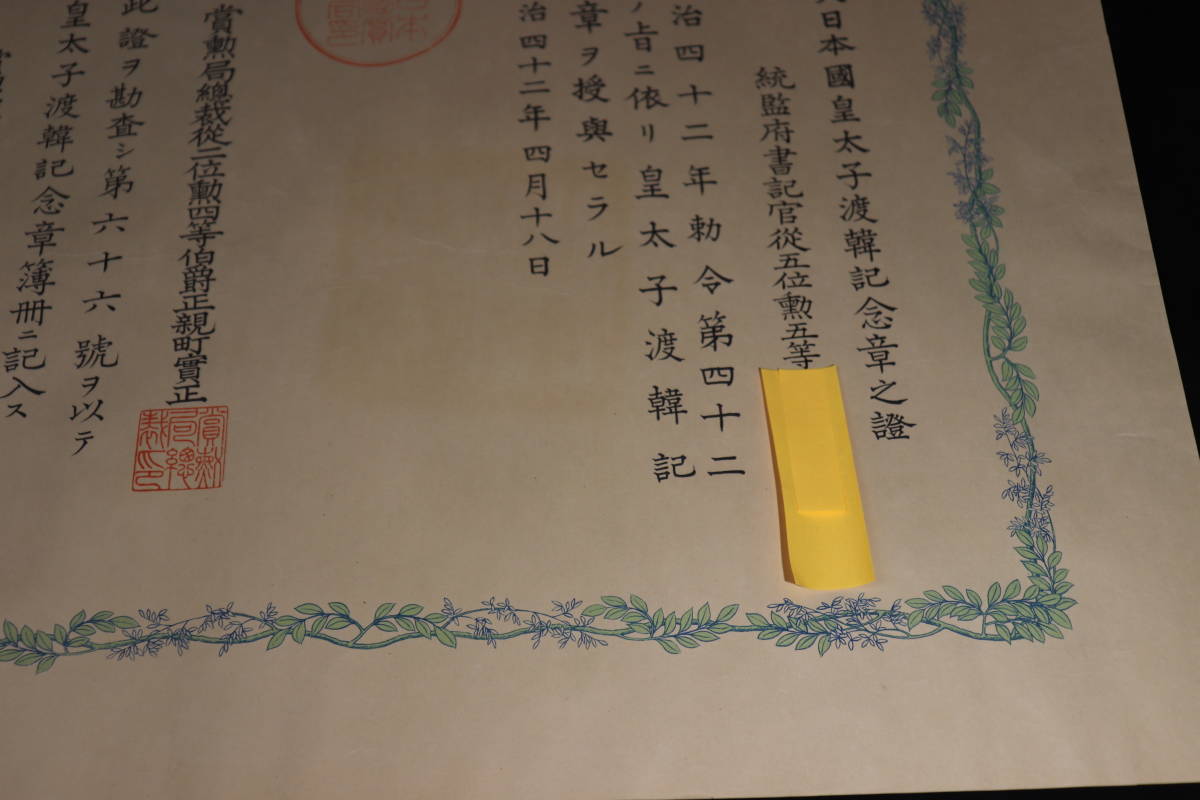 日本國皇太子渡韓記念章之證
統監府書記官從五位勲五等
治四十二年勅令第四十二
ノ旨ニ依リ皇太子渡韓記
章ヲ授與セラル
治四十二年四月十八日
賞勲局總裁從二位勲四等伯爵正親町實正
賞勲局總裁印
此證ヲ勘査シ第六十六號ヲ以テ
皇太子渡韓記念章簿冊ニ記入ス